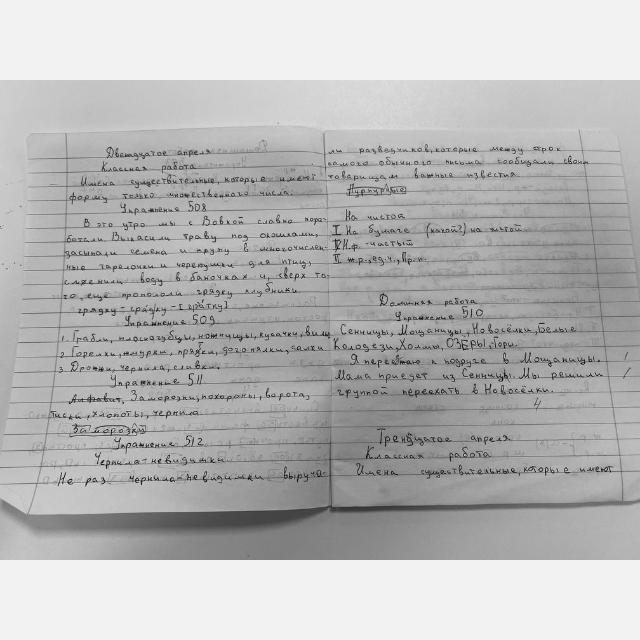 Двенадцатое апреля
Классная работа
Имена существительные, которые имеют
форму только множественного числа.
Упражнение 508
В это утро мы с Вовкой славно пора-
ботали
траву под окошками,
засыпали семена и крупу в многочислен-
ные тарелочки и черепушки для птиц,
сменили воду в баночках и, сверх то-
го, ещё пропололи грядку клубники
грядку - срядку - [грátку]
Упражнение 509
1. Грабли, плоскозубцы, ножницы, кусачки, вилы
2. Горелки, жмурки, прядки, догонялки, салки
3. Дрожжи, чернила, сливки.
Упражнение 511
Алфавит, Заморозки, похороны, ворота,
тиски, хлопоты, чернила
Заморозки
Упражнение 512
Чернила-невидимки
Не раз чернила-невидимки выруча-
ли разведчиков, которые между строк
самого обычного письма сообщали своим
товарищам важные известия.
На чистой
I На бумаге (какой?) на чистой
II ж.р., ед.ч., пр.п.
Домашняя работа
Упражнение 510
Сенницы, Мощаницы, Новосёлки, Белые
Колодези, Холмы, ОЗЕРЫ, Горы.
Я переезжаю к подруге в Мощаницы.
Мама приедет из Сенницы. Мы решили
группой переехать в Новосёлки.
4
апреля
Классная работа
Имена существительные, которые имеют